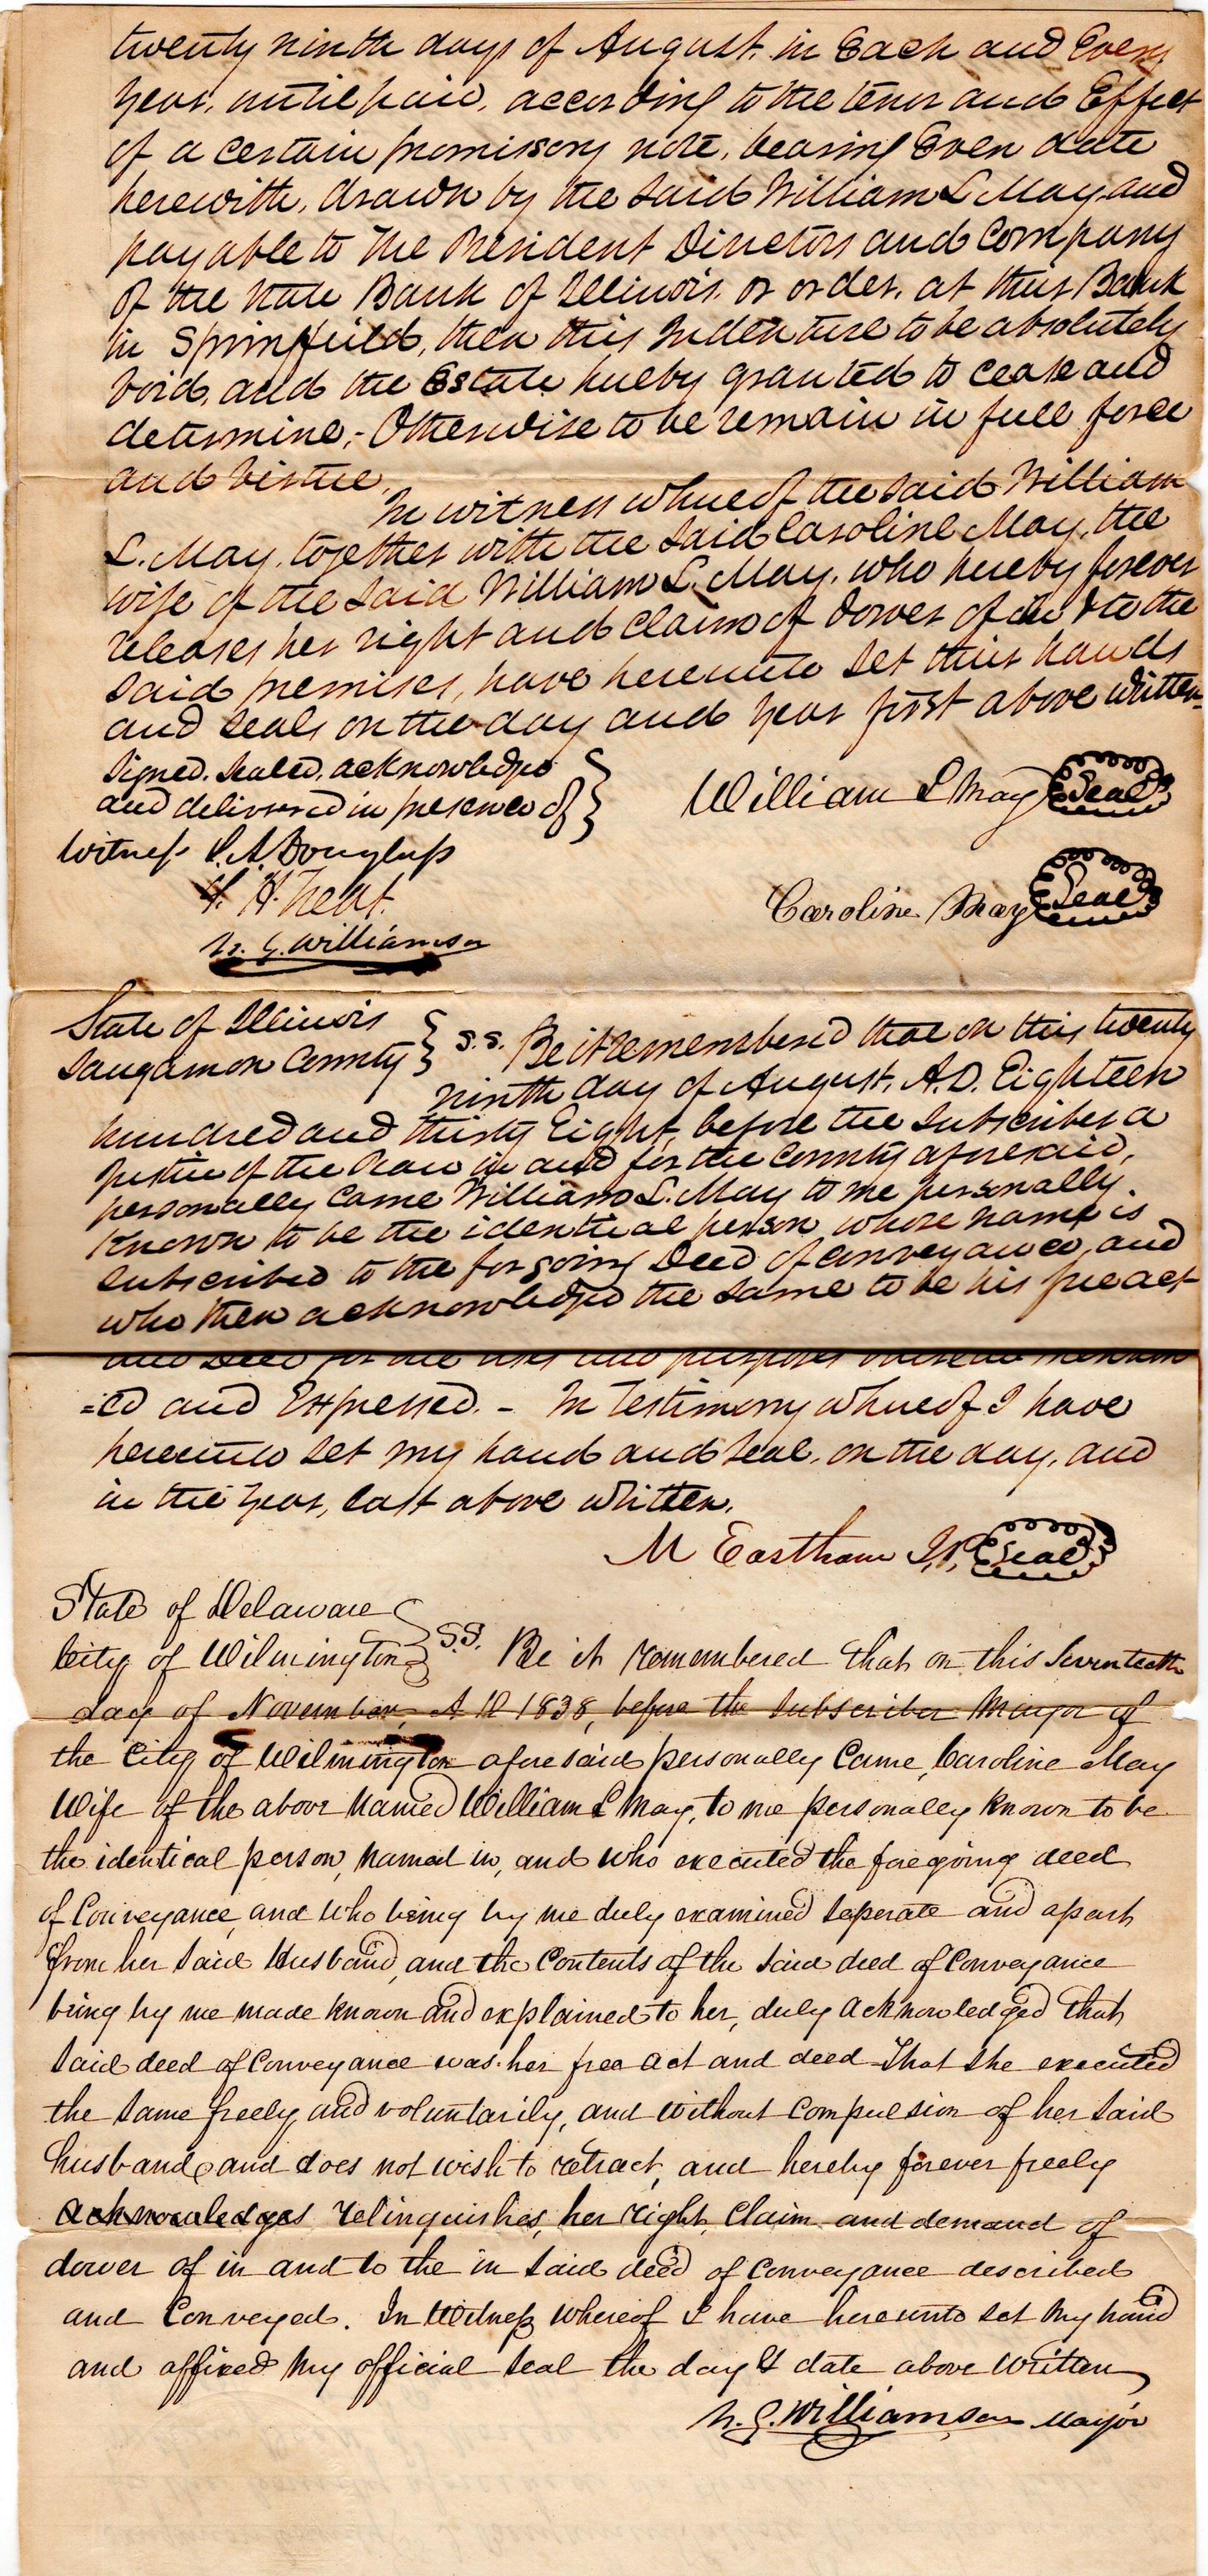 twenty ninth days of August, in Each and Every
year, until paid, according to the tenor and Effect
of a certain promissory note, bearing Even date
herewith, drawn by the said William L May, and
payable to The President Directors and Company
of the State Bank of Illinois, or order, at their Bank
in Springfield, then this Indenture to be absolutely
void, and the Estate hereby granted to cease and
determine,- Otherwise to be remain in full force
and virtue.
In witness whereof the said William
L. May, together with the said Caroline May, the
wife of the said William L. May, who hereby forever
releases her right and claim of dower of in & to the
said premises, have hereunto set their hands
and seals on the day and year first above written
Signed. Sealed, acknowledged
and delivered in presence of
William L May Seal
Witness S. A. Douglass
H.
Caroline May Seal
N. G. Williamson
State of Illinois
Sangamon County S.S. Be it remembered that on this twenty
ninth day of August, A.D. Eighteen
hundred and thirty Eight, before the subscriber a
Justice of the Peace in and for the County aforesaid,
personally came William L. May to me personally
Known to be the identical person whose name is
subscribed to the forgoing Deed of Conveyance, and
who then acknowledged the same to be his free act
and Deed for the uses and purposes therein mention
=ed and Expressed. - In Testimony whereof I have
hereunto set my hand and seal, on the day, and
in the year, last above written.
M Eastham J.P. Seal
State of Delaware
City of Wilmington S.S. Be it remembered that on this Seventeenth
day of November, A D 1838, before the Subscriber Mayor of
the City of Wilmington aforesaid personally Came, Caroline May
Wife of the above Named William L May, to me personally Known to be
the identical person, Named in, and who executed the foregoing deed
of Conveyance, and who being by me duly examined seperate and apart
from her said Husband, and the Contents of the said deed of Conveyance
being by me made known and explained to her, duly acknowledged that
said deed of Conveyance was her free act and deed - That she executed
the same freely and voluntarily, and without Compulsion of her said
husband, and does not wish to retract, and hereby forever freely
acknowledges relinquishes, her right, Claim and demand of
dower of in and to the in said deed of Conveyance described
and Conveyed. In Witness Whereof I have hereunto set my hand
and affixed My official seal the day & date above written
N. G. Williamson Mayor